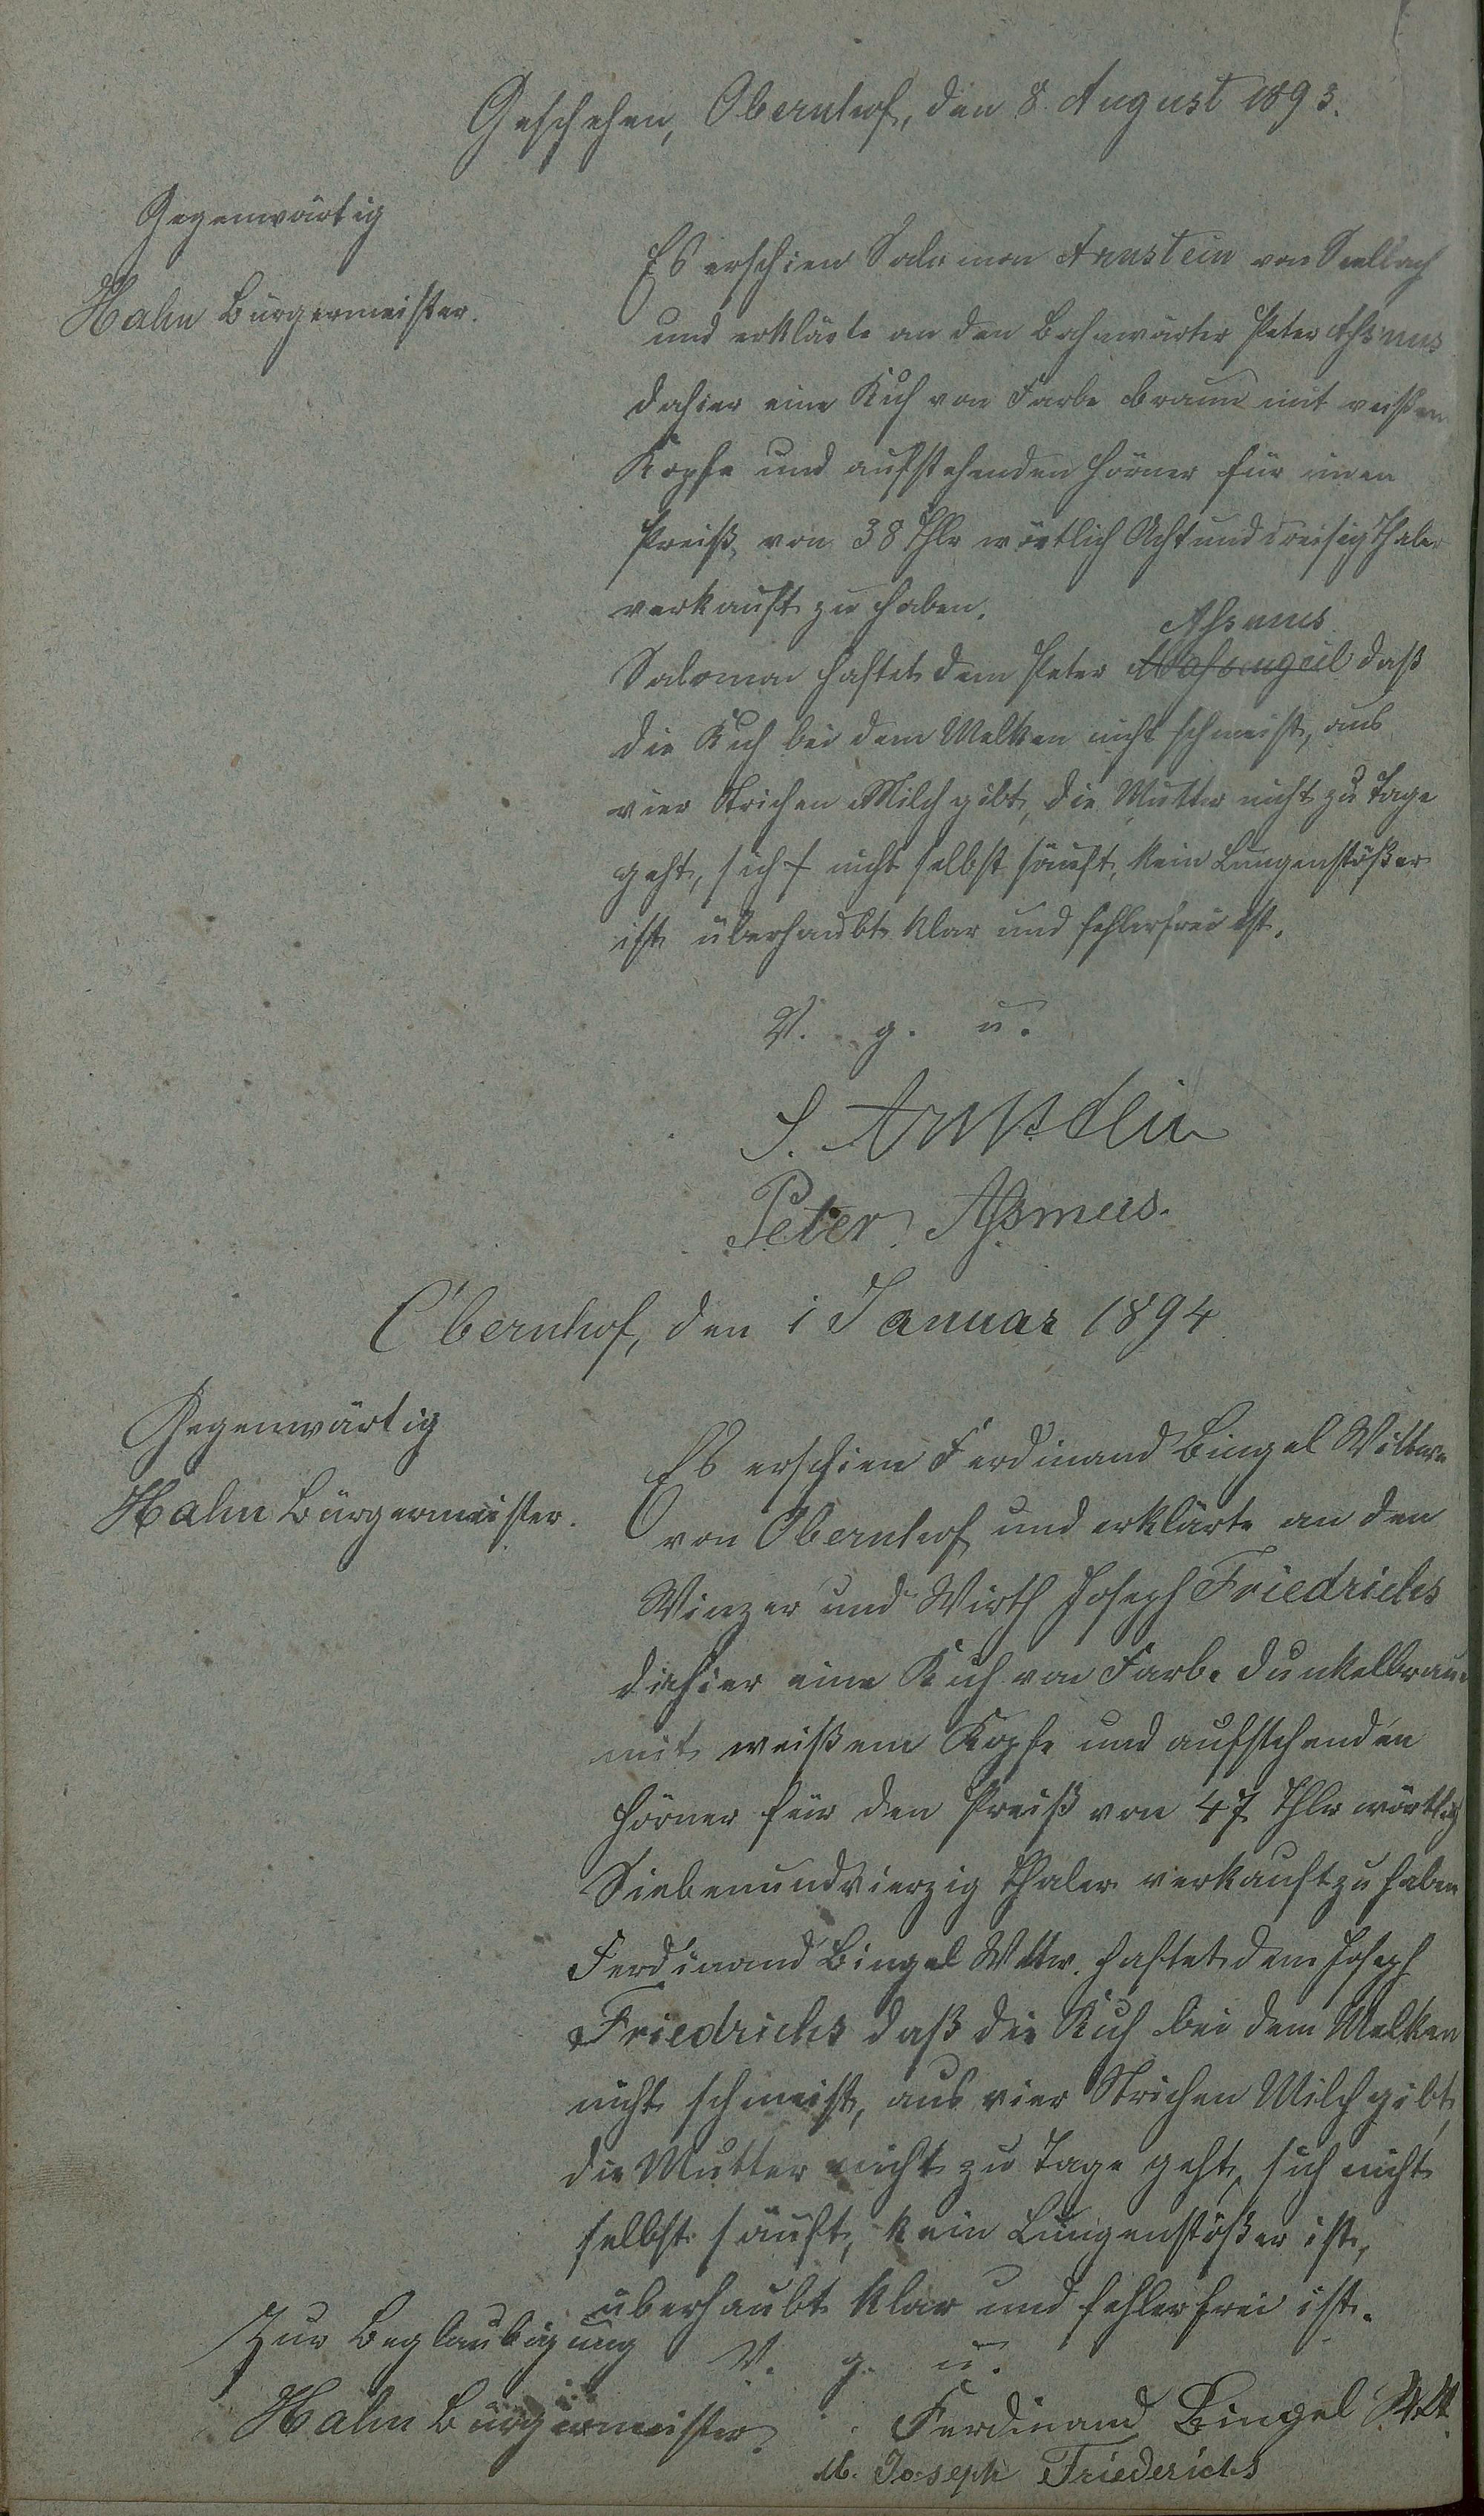 Geschehen, Obernhof, den 8. August 1893.
Gegenwärtig
Hahn Bürgermeister.
Es erschien Salomon Arnstein von Seelbach
und erklärte an den Bahnwärter Peter Aßmus
dahier eine Kuh von Farbe braun mit weißem
Kopfe und aufstehenden Hörner für einen
Preiß von 38 Thlr wörtlich Achtunddreisig Thaler
verkauft zu haben.
Aßmus
Salomon haftet dem Peter daß
die Kuh bei dem Melken nicht schmeist, aus
vier Strichen Milch gibt, die Mutter nicht zu Tage
geht, sich nicht selbst säuft, kein Lungenstößer
ist überhaubt klar und fehlerfrei ist.
V. g. u.
S. Arnstein
Peter Aßmus.
Obernhof, den 1 Januar 1894
Gegenwärtig
Hahn Bürgermeister.
Es erschien Ferdinand Bingel Wittwe
von Obernhof und erklärte an den
Winzer und Wirth Joseph Friedrichs
dahier eine Kuh von Farbe dunkelbraun
mit weißem Kopfe und aufstehenden
Hörner für den Preiß von 47 Thlr wörtlich
Siebenundvierzig Thaler verkauft zu haben
Ferdinand Bingel Wittw. haftet dem Joseph
Friedrichs daß die Kuh bei dem Melken
nicht schmeist, aus vier Strichen Milch gibt,
die Mutter nicht zu Tage geht, sich nicht
selbst säuft, kein Lungenstößer ist,
überhaubt klar und fehlerfrei ist.
Zur Beglaubigung
V. g. u.
Hahn Bürgermeister.
Ferdinand Bingel Witt
M. Joseph Friederichs